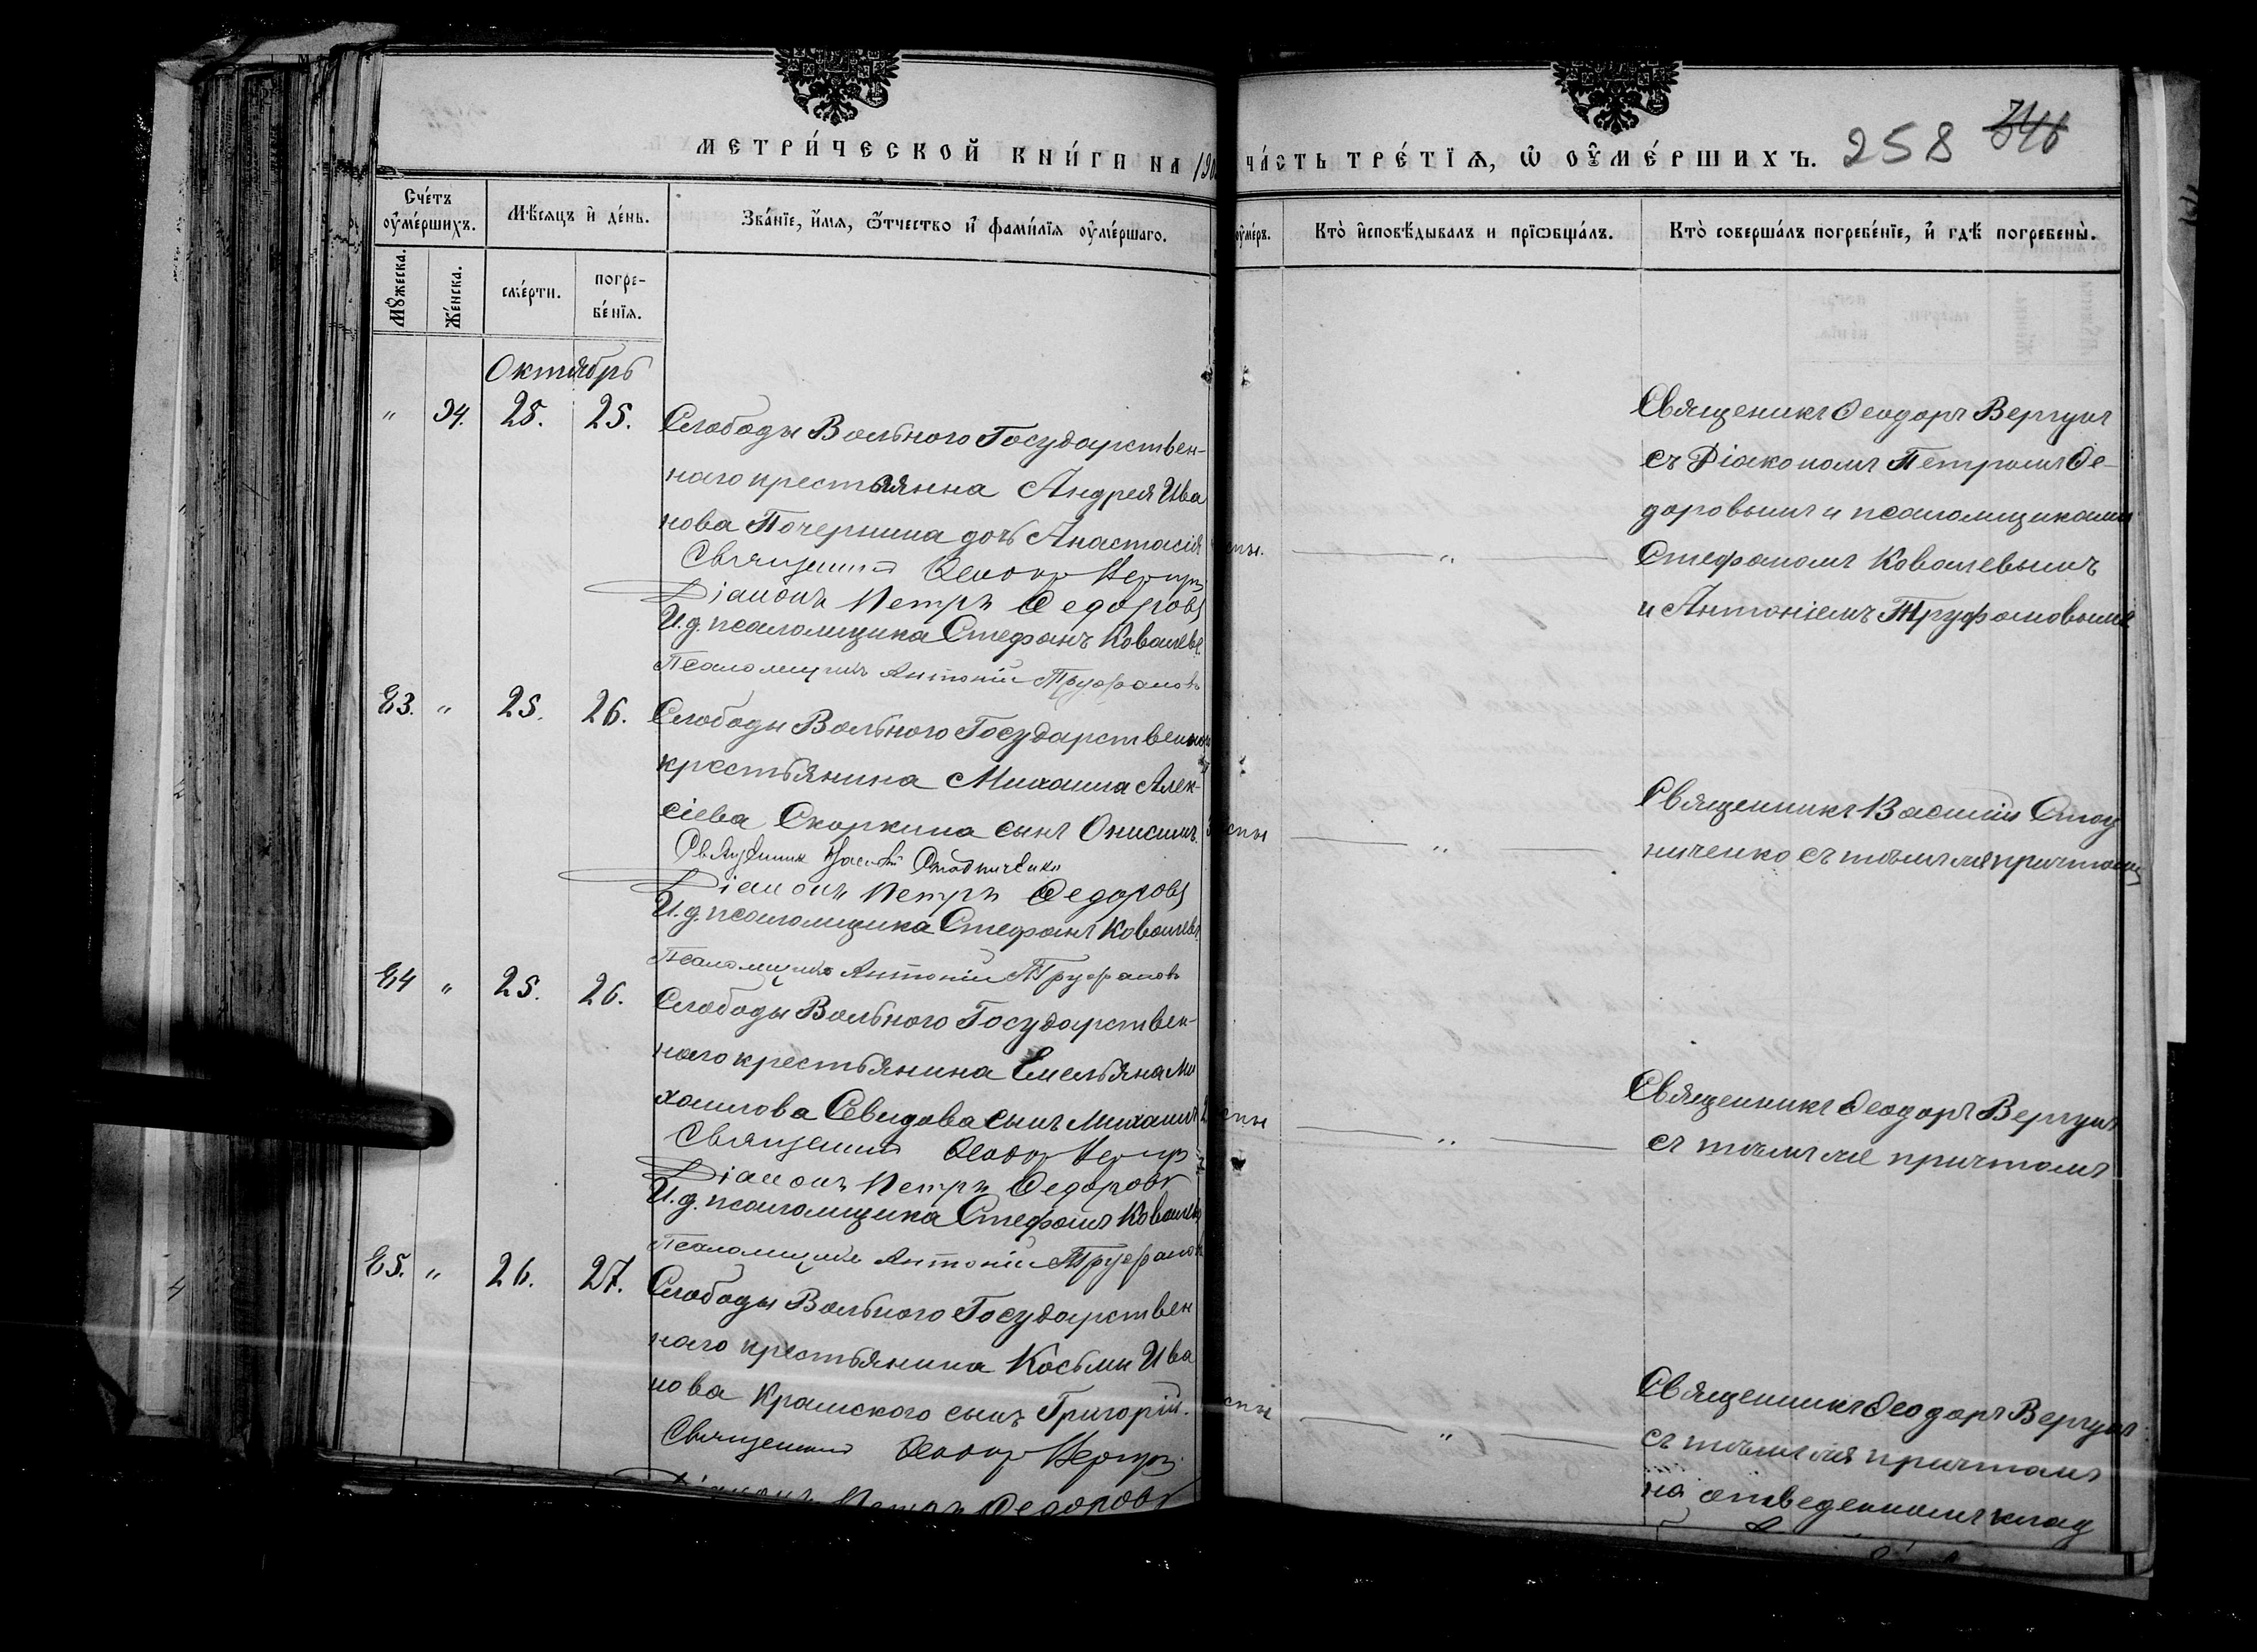 МЕТРИ́ЧЕСКОЙ КНИ́ГИ НА 190
ЧА́СТЬ ТРЕ́ТІѦ, Ѡ ОУ҆МЕ́РШИХЪ.
258
Сче́тъ оу҆ме́ршихъ.
Мѣ́сѧцъ и҆ де́нь.
Зва́нїе, и҆́мѧ, ѻ҆́тчество и҆ фами́лїѧ оу҆ме́ршаго.
оу҆ме́ръ.
Кто̀ и҆сповѣ́дывалъ и прїѡбща́лъ.
Кто̀ соверша́лъ погребе́нїе, и҆ гдѣ̀ погребены̀.
Мꙋ́жеска.
Же́нска.
сме́рти.
погре-
бе́нїѧ.
Октябрь
" 94. 25. 25.
Слободы Вольного Государствен-
наго крестьянина Андрея Ива
нова Почернина дочь Анастасія
Священникъ Ѳеодоръ Вергунъ
Діаконъ Петръ Ѳедоровъ
И.д. псаломщика Стефанъ Ковалевъ
Псаломщикъ Антоній Труфановъ
Священикъ Ѳеодоръ Вергунъ
съ Діакономъ Петромъ Ѳе-
доровымъ и псаломщиками
Стефаномъ Ковалевымъ
и Антоніемъ Труфановымъ
83. " 25. 26.
Слободы Вольного Государственнаго
крестьянина Михаила Алек-
сіева Скоркина сынъ Онисимъ
Священник Василій Стадниченко
Діаконъ Петръ Ѳедоровъ
И.д. псаломщика Стефанъ Ковалевъ
Псаломщикъ Антоній Труфановъ
Священникъ Василій Стад
ниченко съ тѣмъ же причтомъ
84 " 25. 26.
Слободы Вольного Государствен-
наго крестьянина Емельяна Ми
хаилова Севидова сынъ Михаилъ
Священникъ Ѳеодоръ Вергунъ
Діаконъ Петръ Ѳедоровъ
И.д. псаломщика Стефанъ Ковалевъ
Псаломщикъ Антоній Труфановъ
Священникъ Ѳеодоръ Вергунъ
съ тѣмъ же причтомъ
85. " 26. 27.
Слободы Вольного Государствен
наго крестьянина Косьмы Ива
нова Крамского сынъ Григорій.
Священникъ Ѳеодоръ Вергунъ
Діаконъ Петръ Ѳедоровъ
Священникъ Ѳеодоръ Вергунъ
съ тѣмъ же причтомъ
на отведенномъ клад